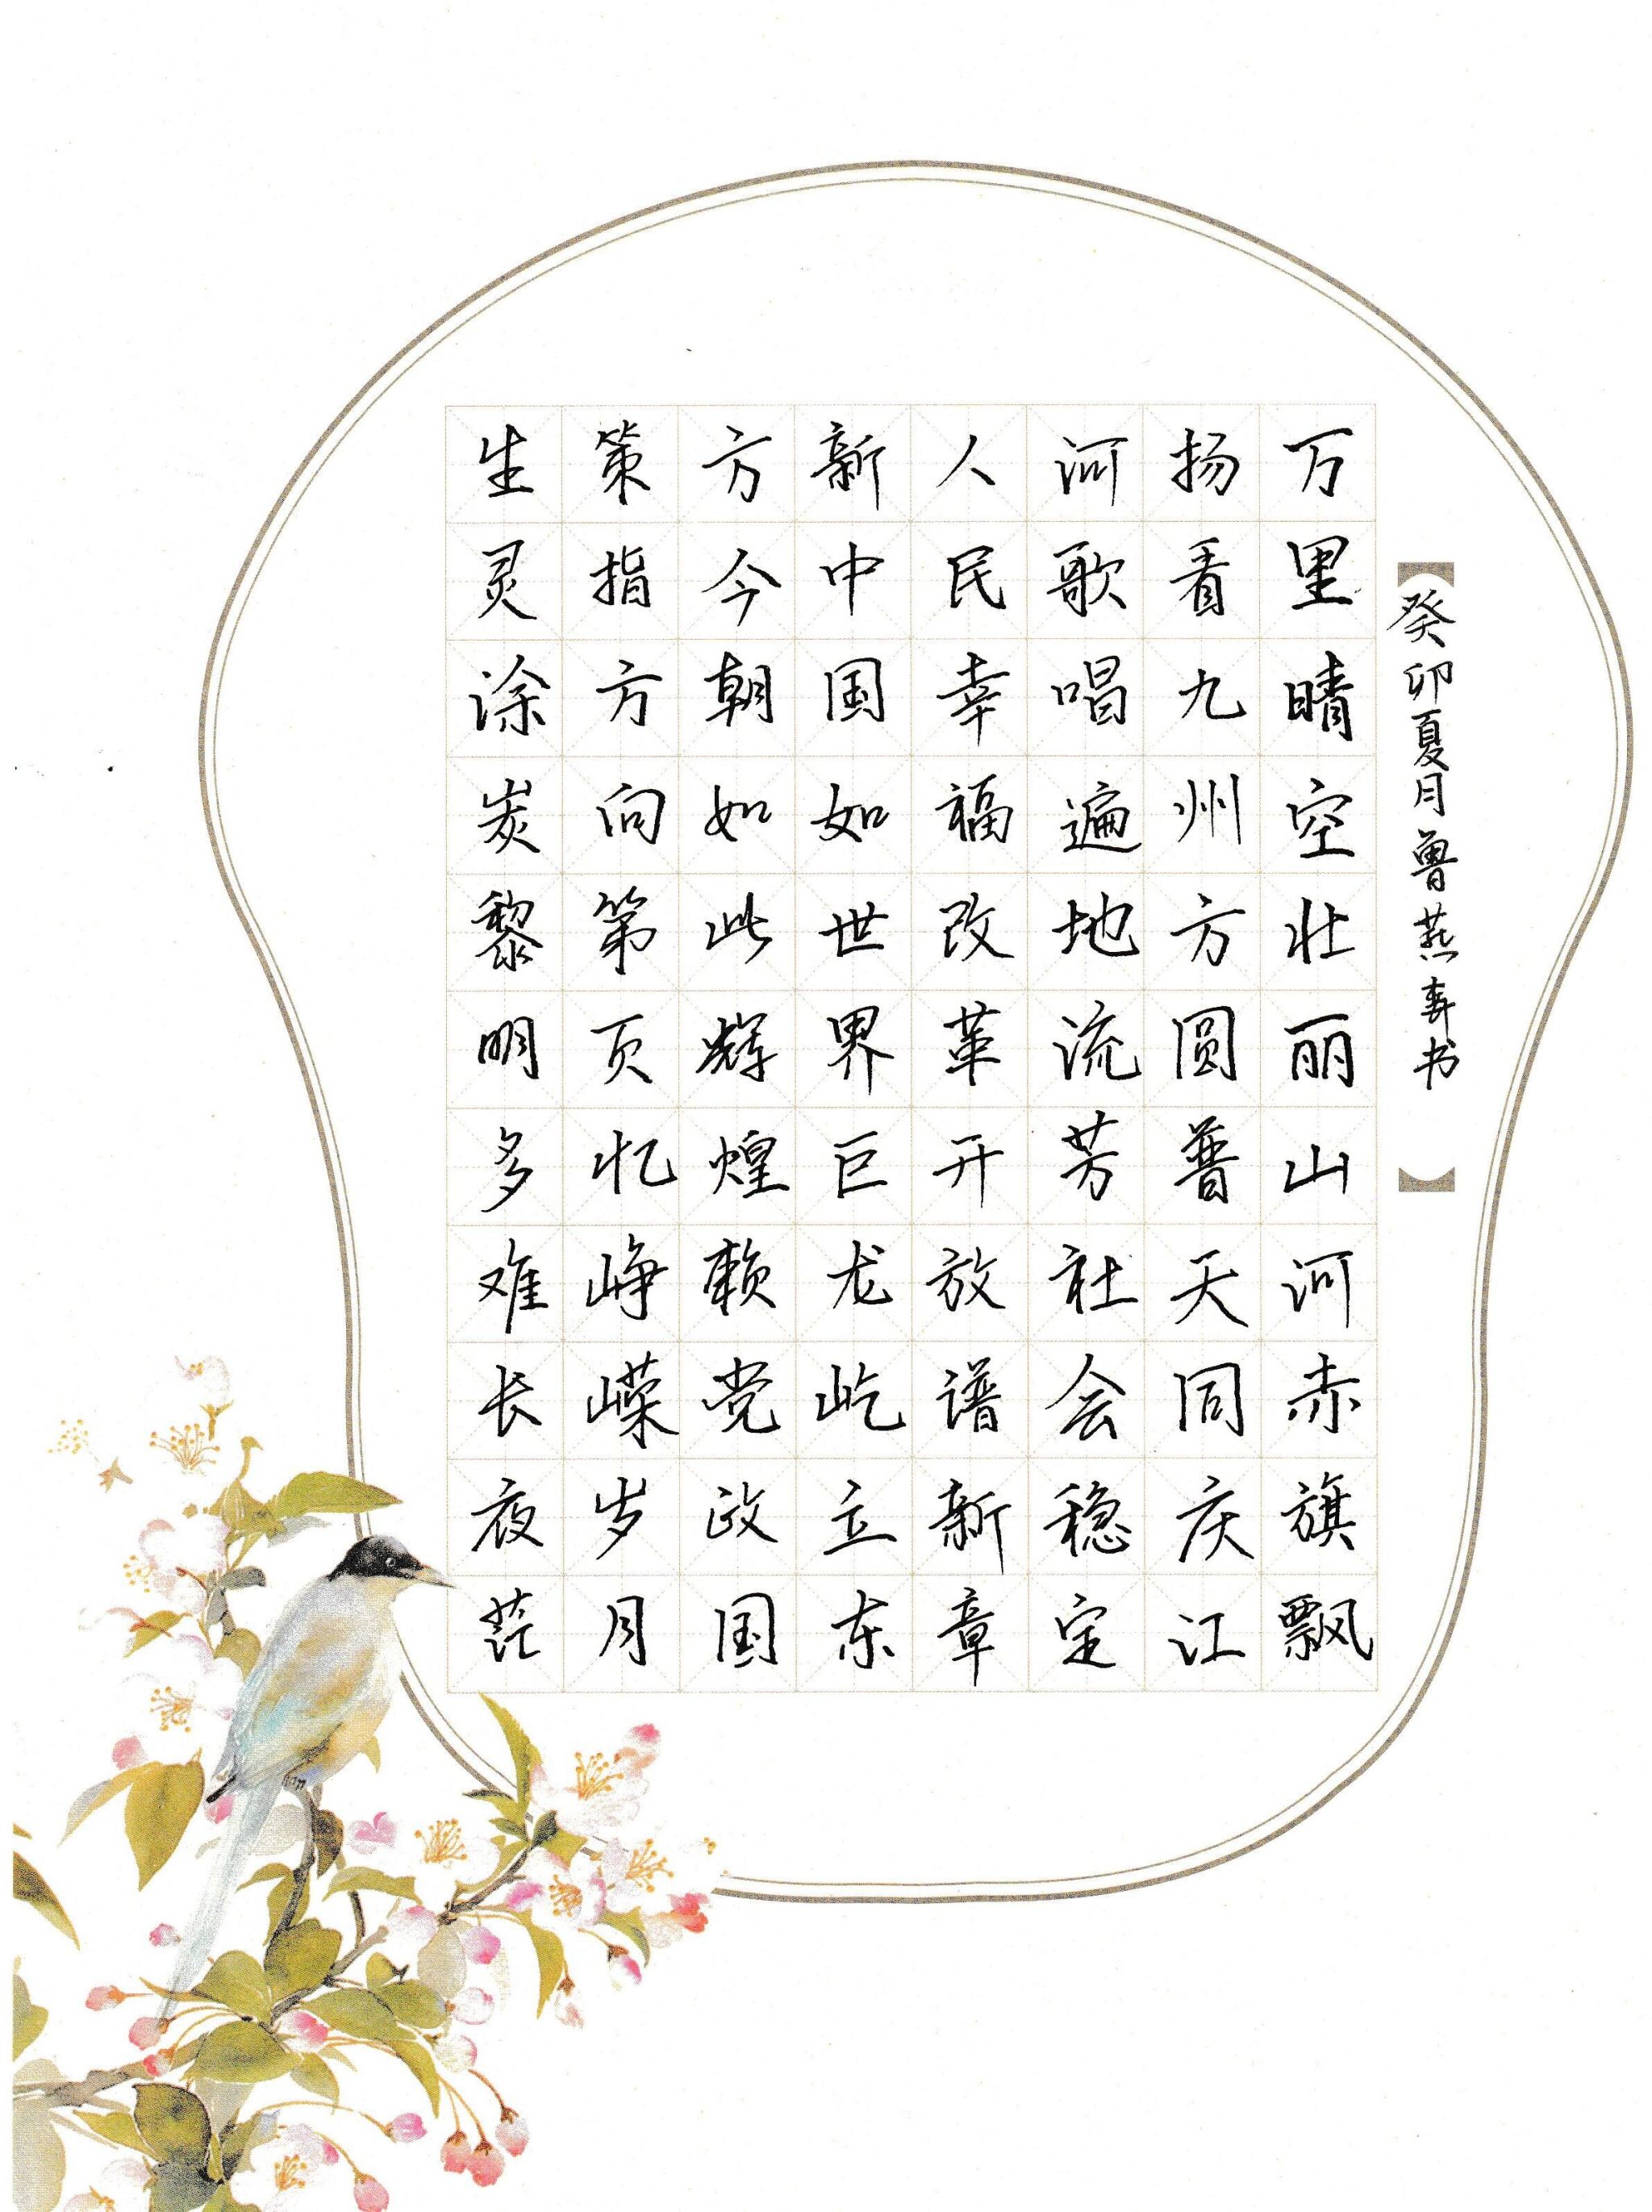 癸卯夏月鲁燕书
万里晴空壮丽山河赤旗飘
扬看九州方圆普天同庆江
河歌唱遍地流芳社会稳定
人民幸福改革开放谱新章
新中国如世界巨龙屹立东
方今朝如此辉煌赖党政国
策指方向第页忆峥嵘岁月
生灵涂炭黎明多难长夜茫